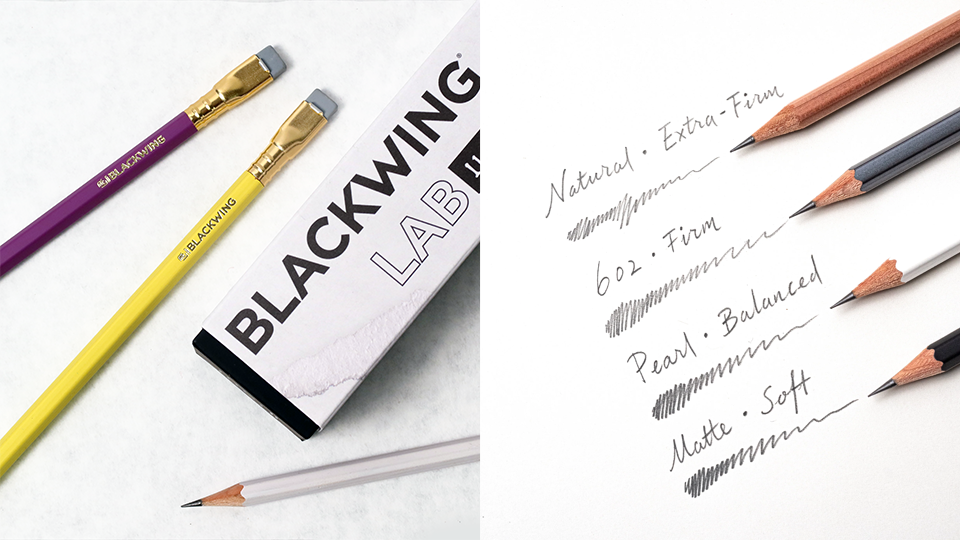 BLACKWING
BLACKWING
BLACKWING®
LAB
Natural · Extra-Firm
602 · Firm
Pearl · Balanced
Matte · Soft